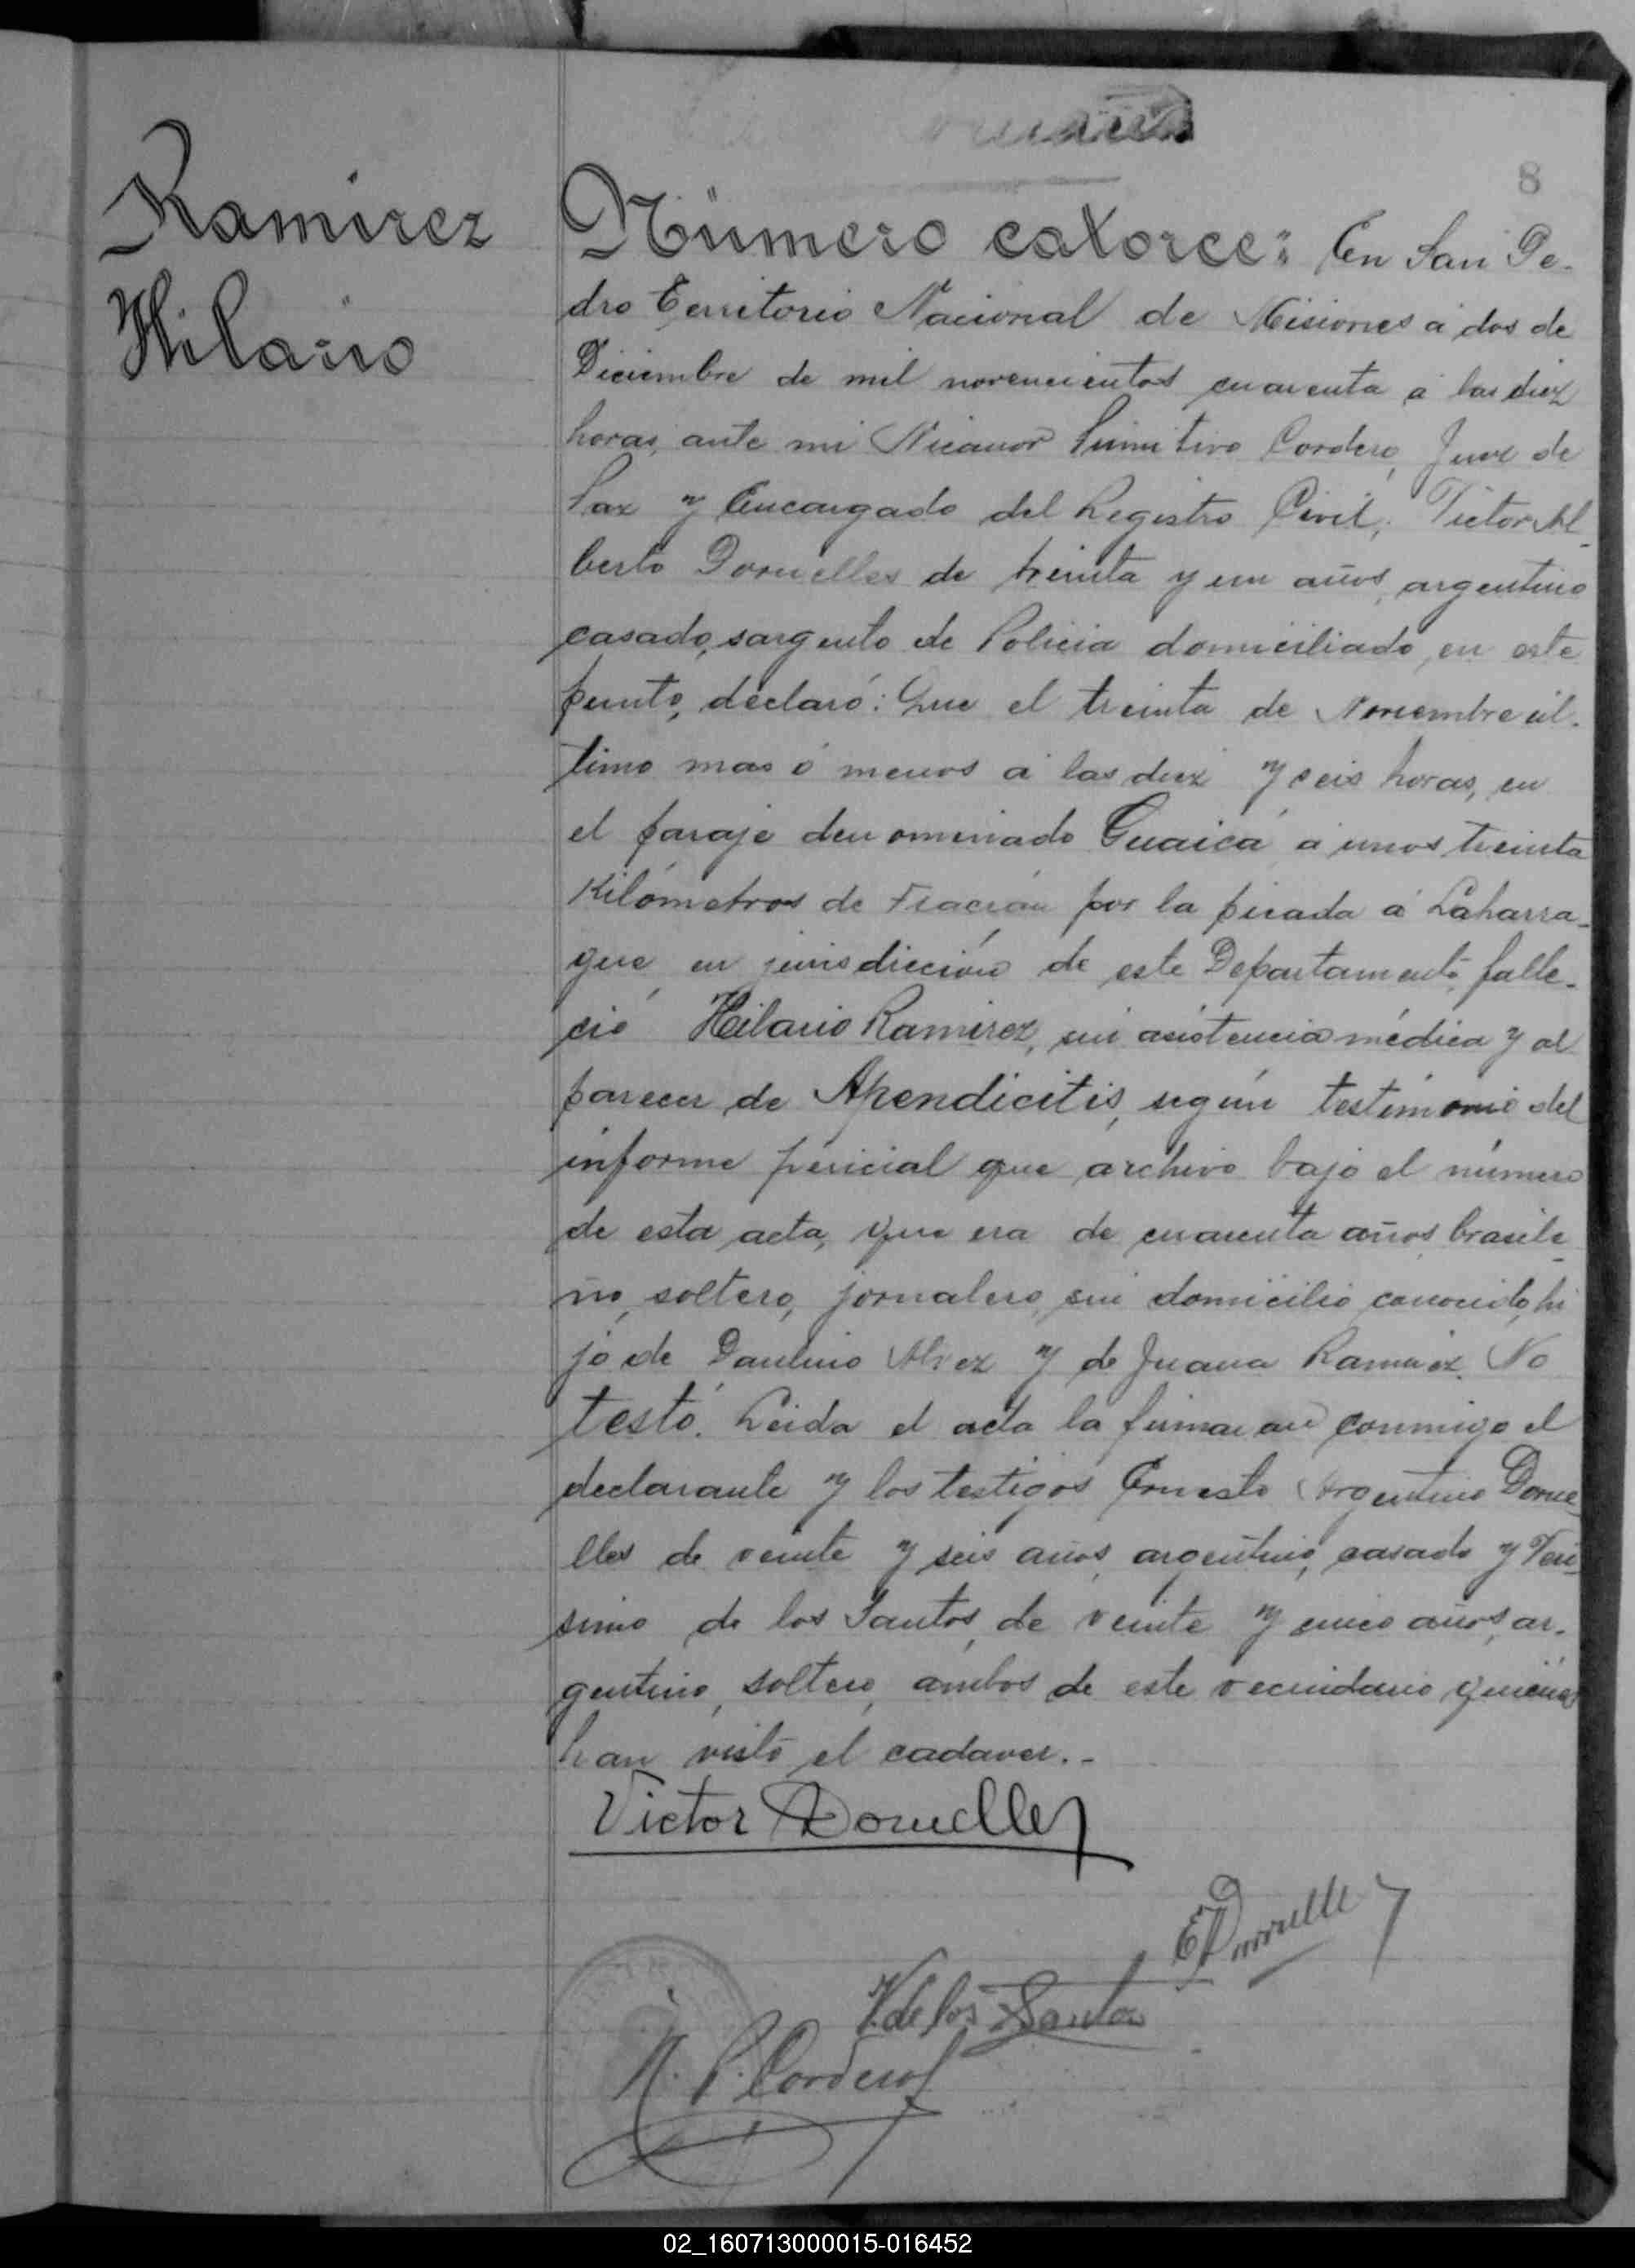 8
Ramirez
Hilario
Número catorce: En San Pe-
dro Territorio Nacional de Misiones á dos de
Diciembre de mil novecientos cuarenta á las diez
horas, ante mi Nicanor Primitivo Cordero, Juez de
Paz y Encargado del Registro Civil, Victor Al-
berto Dornelles de treinta y un años, argentino
casado, sargento de Policia domiciliado en este
punto, declaró: Que el treinta de Noviembre úl-
timo mas ó menos á las diez y seis horas, en
el paraje denominado Guaicá á unos treinta
Kilómetros de Fracrán por la picada á Laharra-
gue en jurisdicción de este Departamento, falle-
ció Hilario Ramirez, sin asistencia médica y al
parecer de Apendicitis, según testimonio del
informe pericial que archivo bajo el número
de esta acta, que era de cuarenta años brasile-
ño, soltero, jornalero, sin domicilio conocido, hi
jo de Paulino Alvez y de Juana Ramirez. No
testó. Leida el acta la firmaran conmigo el
declarante y los testigos Ernesto Argentino Dorne
lles de veinte y seis años, argentino, casado y Veri-
simo de los Santos, de veinte y cinco años, ar-
gentino, soltero, ambos de este vecindario quienes
han visto el cadaver.-
Victor Dornelles
E Dornelles
V. de los Santos
N. P. Cordero
02_160713000015-016452